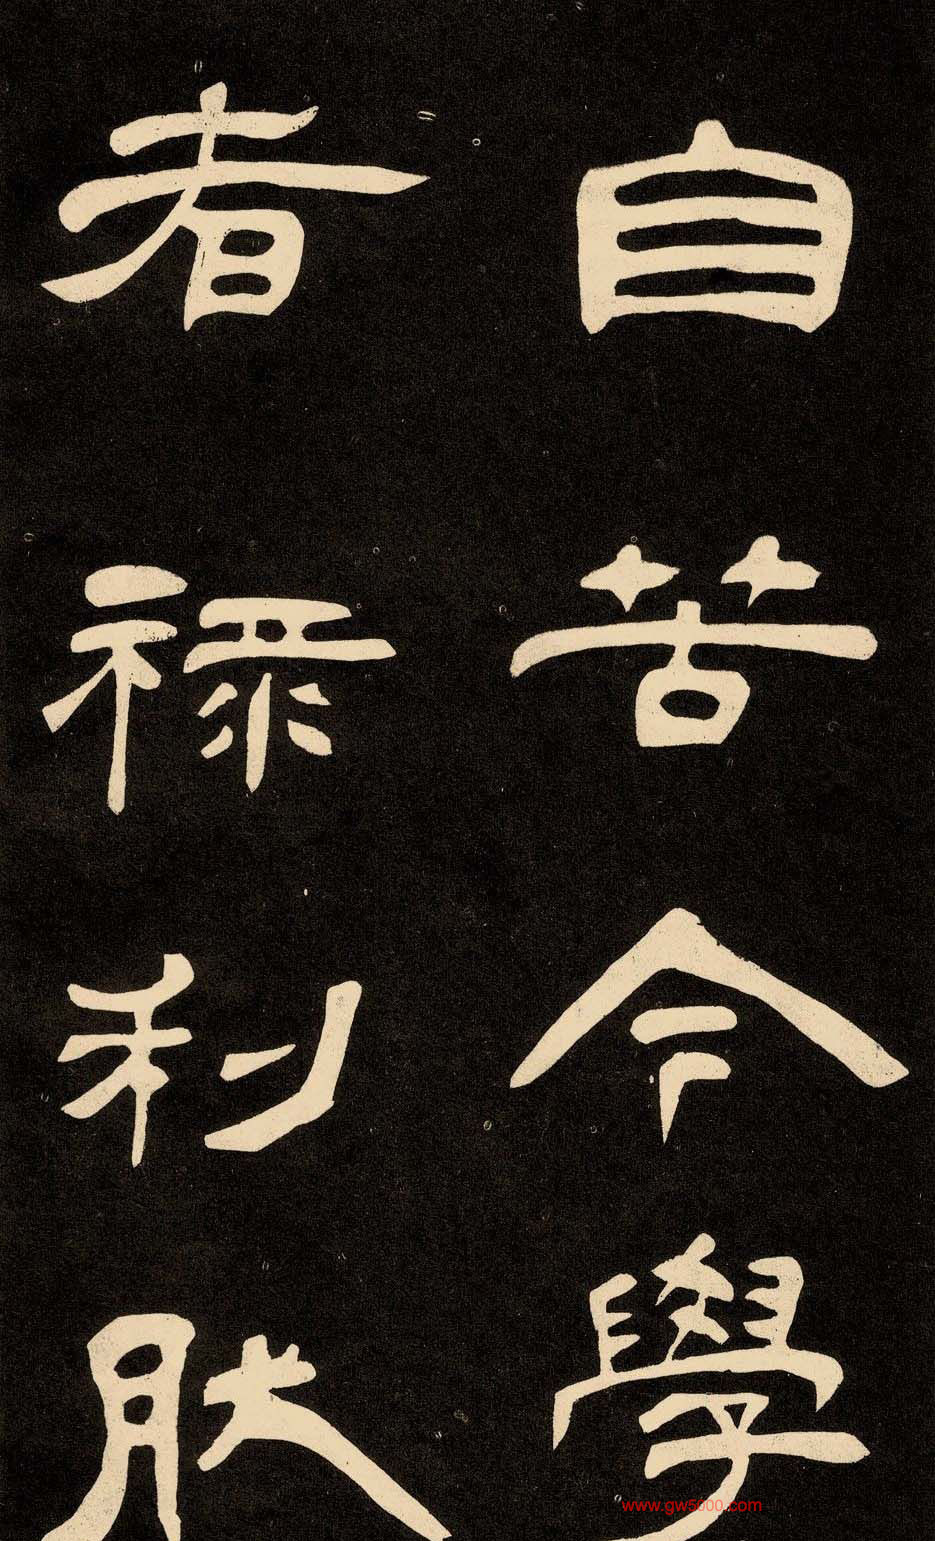 自苦今學
者祿利肰
www.gw5000.com